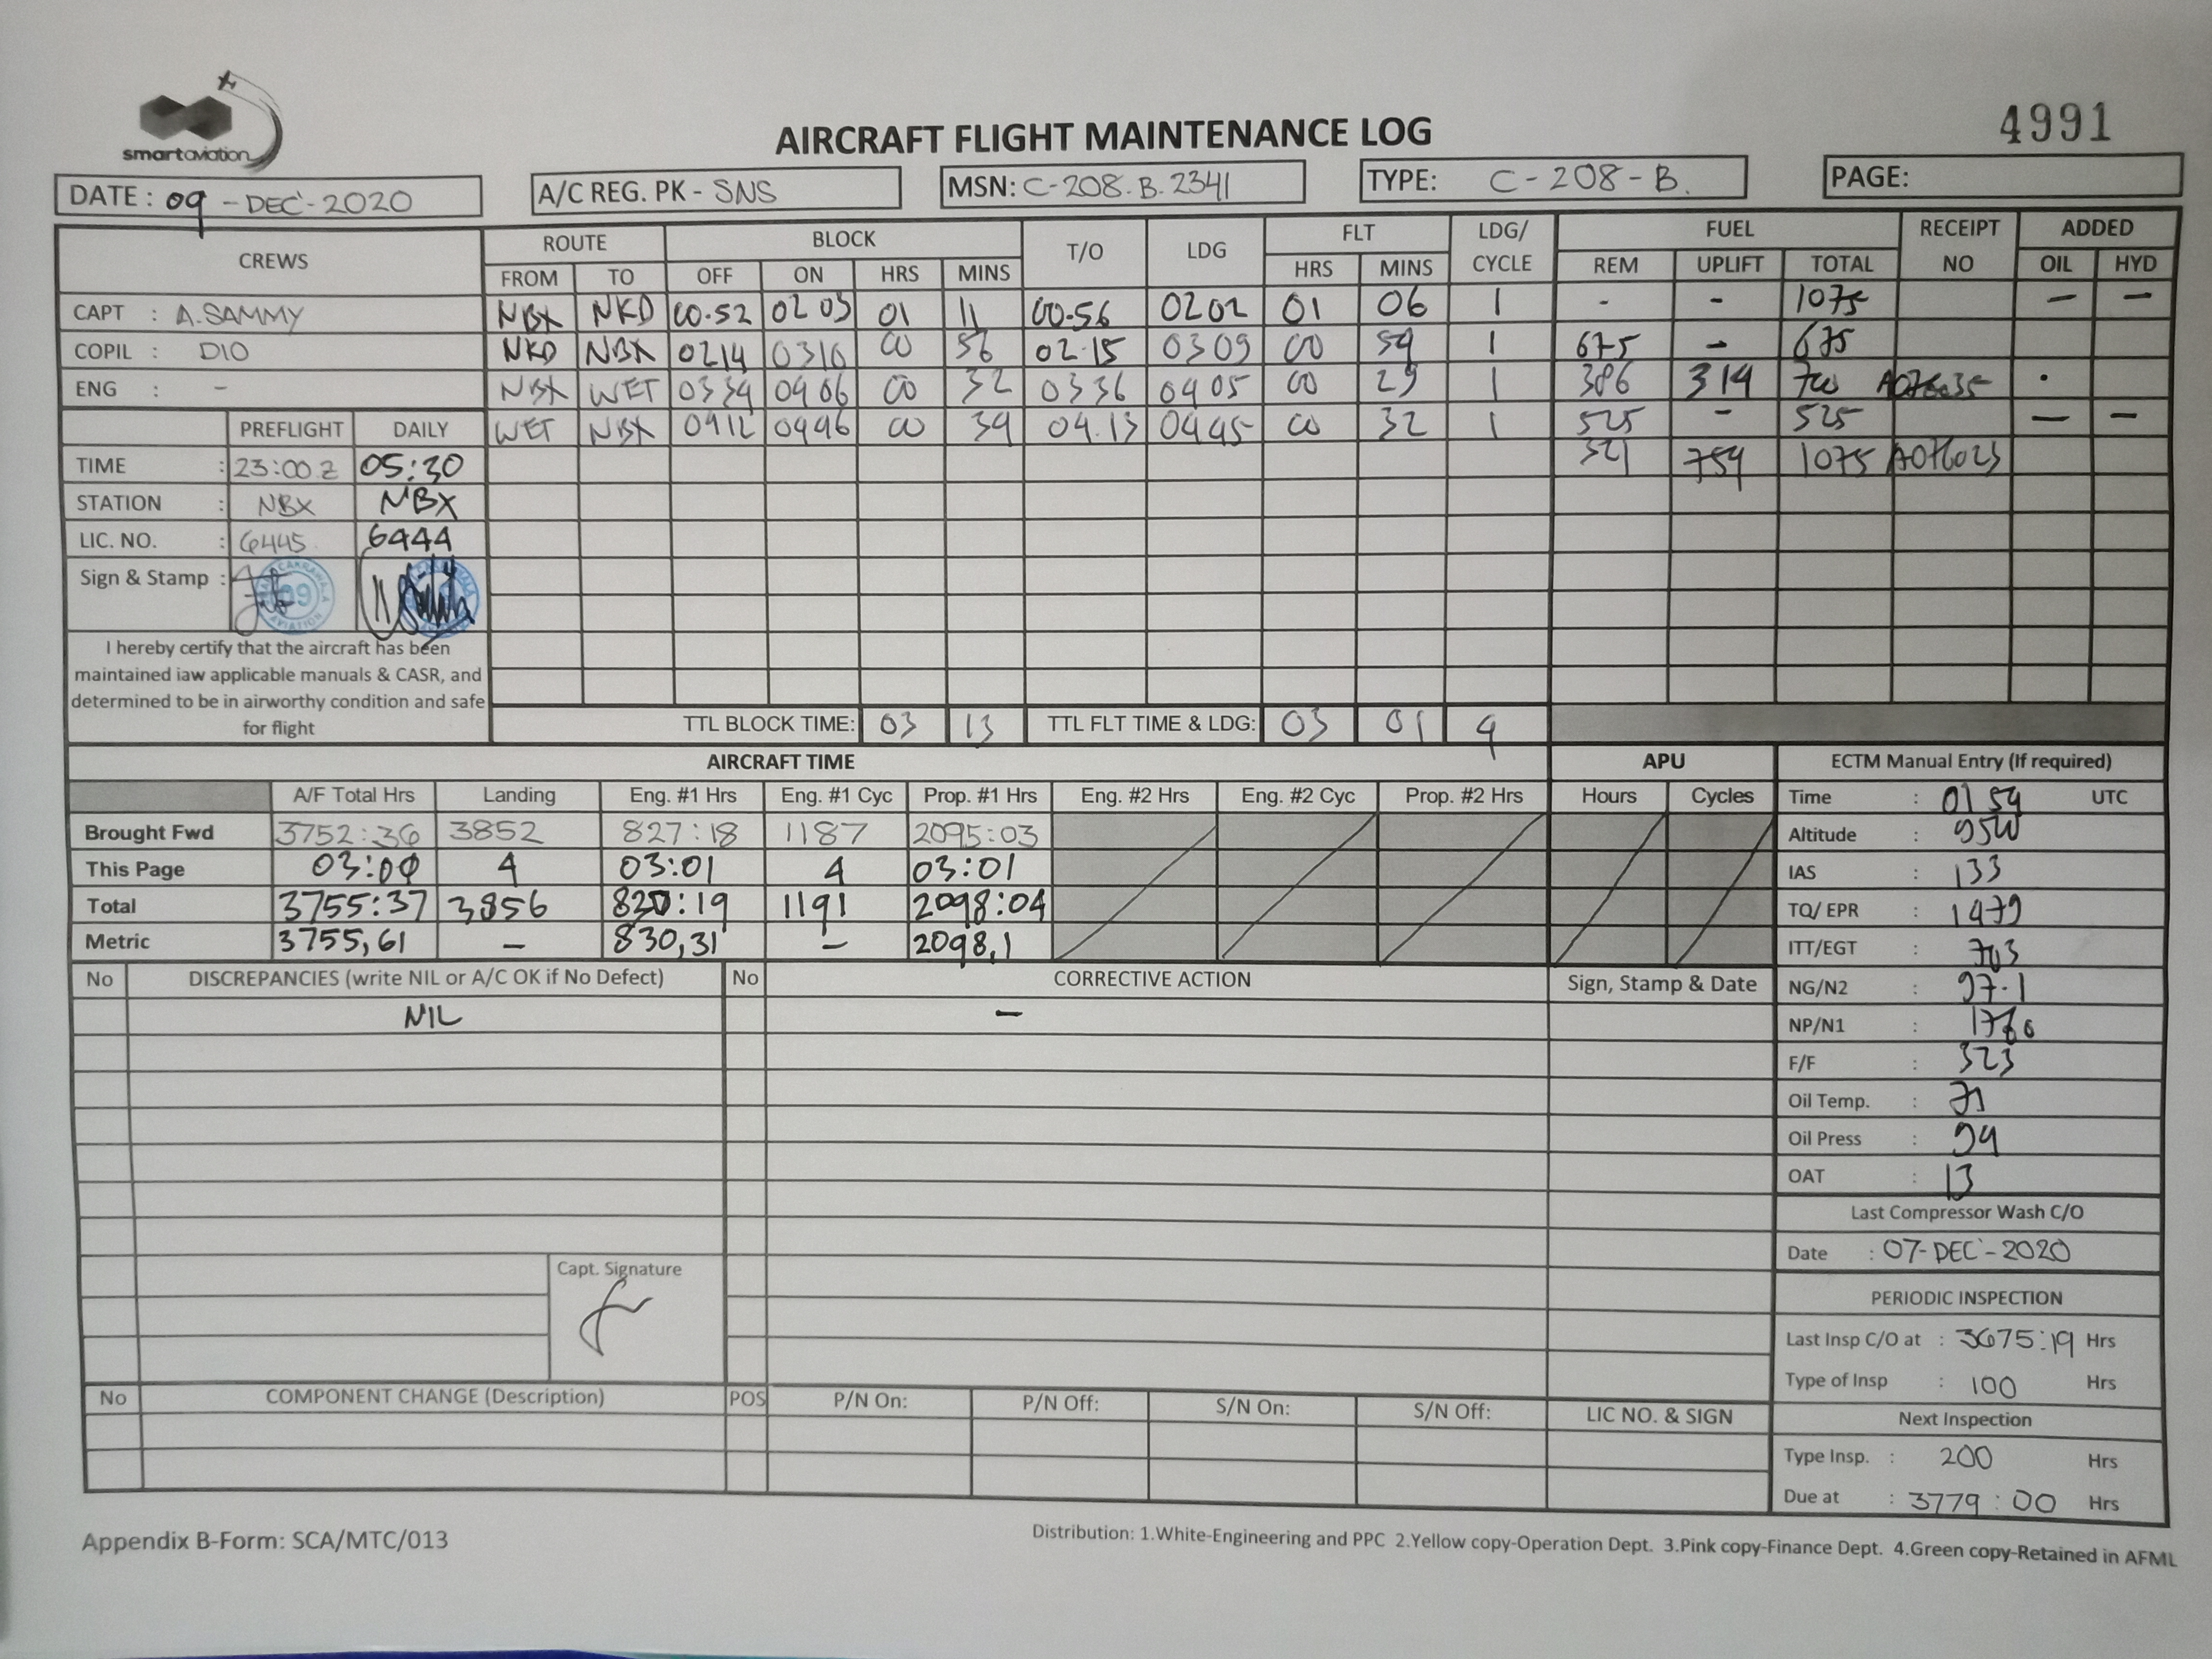 smartaviation
AIRCRAFT FLIGHT MAINTENANCE LOG
4991
DATE : 09 - DEC - 2020
A/C REG. PK - SNS
MSN: C-208.B.2341
TYPE: C-208-B.
PAGE:
CREWS ROUTE BLOCK T/O LDG FLT LDG/ CYCLE FUEL RECEIPT NO ADDED
FROM TO OFF ON HRS MINS HRS MINS REM UPLIFT TOTAL OIL HYD
CAPT : A.SAMMY NBX NKD 00.52 02 03 01 11 00.56 0202 01 06 1 - - 1075 — —
COPIL : DIO NKD NBX 0214 0310 00 56 02.15 0309 00 54 1 675 - 675
ENG : - NBX WET 0334 0406 00 32 0336 0405 00 29 1 386 314 700
WET NBX 0412 0446 00 34 04.13 0445 00 32 1 525 - 525 — —
321 754 1075 A076023
PREFLIGHT DAILY
TIME : 23:00 Z 05:30
STATION : NBX NBX
LIC. NO. : 6445 6444
Sign & Stamp :
CAKRAWALA AVIATION 09
I hereby certify that the aircraft has been
maintained iaw applicable manuals & CASR, and
determined to be in airworthy condition and safe
for flight
TTL BLOCK TIME: 03 13 TTL FLT TIME & LDG: 03 01 4
AIRCRAFT TIME APU
A/F Total Hrs Landing Eng. #1 Hrs Eng. #1 Cyc Prop. #1 Hrs Eng. #2 Hrs Eng. #2 Cyc Prop. #2 Hrs Hours Cycles
Brought Fwd 3752:36 3852 827:18 1187 2095:03
This Page 03:01 4 03:01 4 03:01
Total 3755:37 3856 830:19 1191 2098:04
Metric 3755,61 — 830,31 — 2098,1
ECTM Manual Entry (If required)
Time : 01 54 UTC
Altitude : 9500
IAS : 133
TQ/ EPR : 1479
ITT/EGT : 703
NG/N2 : 97.1
NP/N1 : 1760
F/F : 323
Oil Temp. : 71
Oil Press : 94
OAT : 13
Last Compressor Wash C/O
Date : 07-DEC-2020
PERIODIC INSPECTION
Last Insp C/O at : 3675:19 Hrs
Type of Insp : 100 Hrs
Next Inspection
Type Insp. : 200 Hrs
Due at : 3779 : 00 Hrs
No DISCREPANCIES (write NIL or A/C OK if No Defect) No CORRECTIVE ACTION Sign, Stamp & Date
NIL —
Capt. Signature
No COMPONENT CHANGE (Description) POS P/N On: P/N Off: S/N On: S/N Off: LIC NO. & SIGN
Appendix B-Form: SCA/MTC/013
Distribution: 1.White-Engineering and PPC 2.Yellow copy-Operation Dept. 3.Pink copy-Finance Dept. 4.Green copy-Retained in AFML